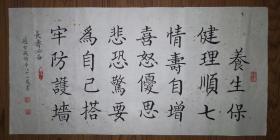 養生保
健理順七
情壽自增
喜怒優思
悲恐驚要
為自己搭
牢防護墻
長壽之百